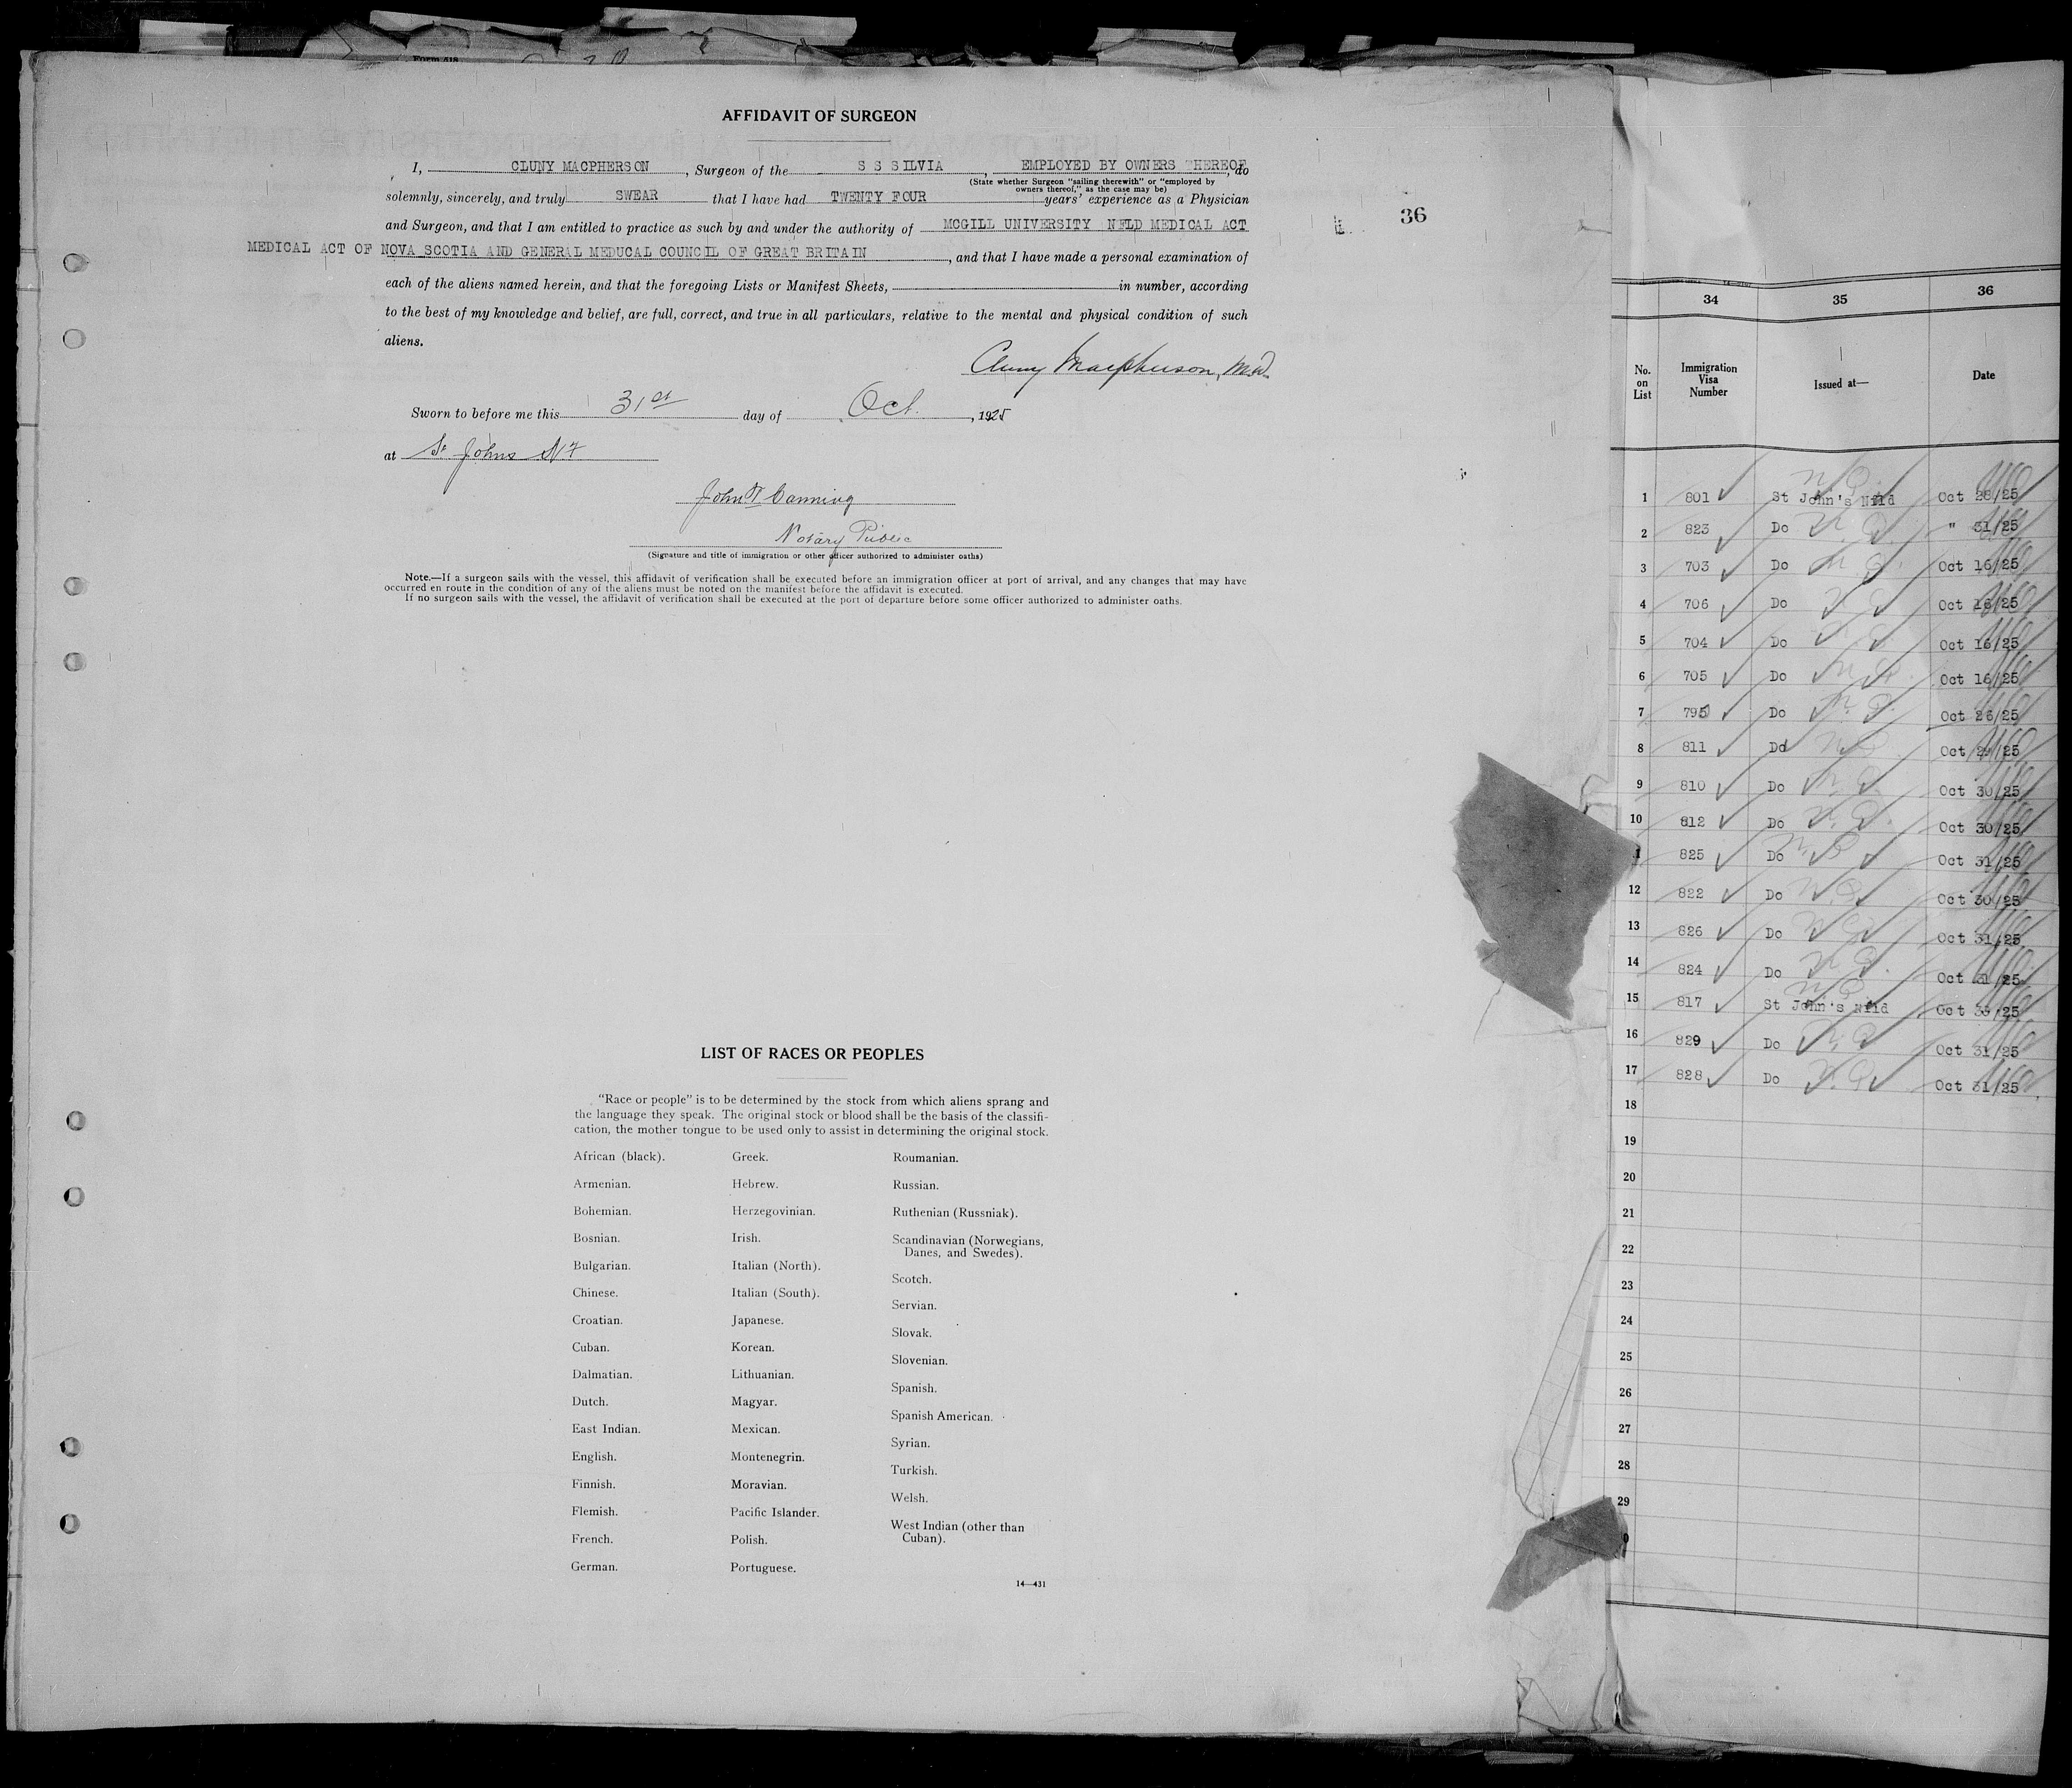 AFFIDAVIT OF SURGEON
I, CLUNY MACPHERSON, Surgeon of the S S SILVIA, EMPLOYED BY OWNERS THEREOF, do
(State whether Surgeon "sailing therewith" or "employed by
owners thereof," as the case may be)
solemnly, sincerely, and truly SWEAR that I have had TWENTY FOUR years' experience as a Physician
and Surgeon, and that I am entitled to practice as such by and under the authority of MCGILL UNIVERSITY NFLD MEDICAL ACT
MEDICAL ACT OF NOVA SCOTIA AND GENERAL MEDUCAL COUNCIL OF GREAT BRITAIN, and that I have made a personal examination of
each of the aliens named herein, and that the foregoing Lists or Manifest Sheets, in number, according
to the best of my knowledge and belief, are full, correct, and true in all particulars, relative to the mental and physical condition of such
aliens.
Cluny Macpherson, M.D.
Sworn to before me this 31st day of Oct., 1925
at St Johns NF
John T Canning
Notary Public
(Signature and title of immigration or other officer authorized to administer oaths)
Note.—If a surgeon sails with the vessel, this affidavit of verification shall be executed before an immigration officer at port of arrival, and any changes that may have
occurred en route in the condition of any of the aliens must be noted on the manifest before the affidavit is executed.
If no surgeon sails with the vessel, the affidavit of verification shall be executed at the port of departure before some officer authorized to administer oaths.
36
LIST OF RACES OR PEOPLES
"Race or people" is to be determined by the stock from which aliens sprang and
the language they speak. The original stock or blood shall be the basis of the classifi-
cation, the mother tongue to be used only to assist in determining the original stock.
African (black).
Armenian.
Bohemian.
Bosnian.
Bulgarian.
Chinese.
Croatian.
Cuban.
Dalmatian.
Dutch.
East Indian.
English.
Finnish.
Flemish.
French.
German.
Greek.
Hebrew.
Herzegovinian.
Irish.
Italian (North).
Italian (South).
Japanese.
Korean.
Lithuanian.
Magyar.
Mexican.
Montenegrin.
Moravian.
Pacific Islander.
Polish.
Portuguese.
Roumanian.
Russian.
Ruthenian (Russniak).
Scandinavian (Norwegians,
Danes, and Swedes).
Scotch.
Servian.
Slovak.
Slovenian.
Spanish.
Spanish American.
Syrian.
Turkish.
Welsh.
West Indian (other than
Cuban).
14—431
34 35 36
No. on List Immigration Visa Number Issued at— Date
1 801 St John's Nfld Oct 28/25
2 823 Do " 31/25
3 703 Do Oct 16/25
4 706 Do Oct 16/25
5 704 Do Oct 16/25
6 705 Do Oct 16/25
7 795 Do Oct 26/25
8 811 Do Oct 29/25
9 810 Do Oct 30/25
10 812 Do Oct 30/25
825 Do Oct 31/25
12 822 Do Oct 30/25
13 826 Do Oct 31/25
14 824 Do Oct 31/25
15 817 St John's Nfld Oct 30/25
16 829 Do Oct 31/25
17 828 Do Oct 31/25
18
19
20
21
22
23
24
25
26
27
28
29